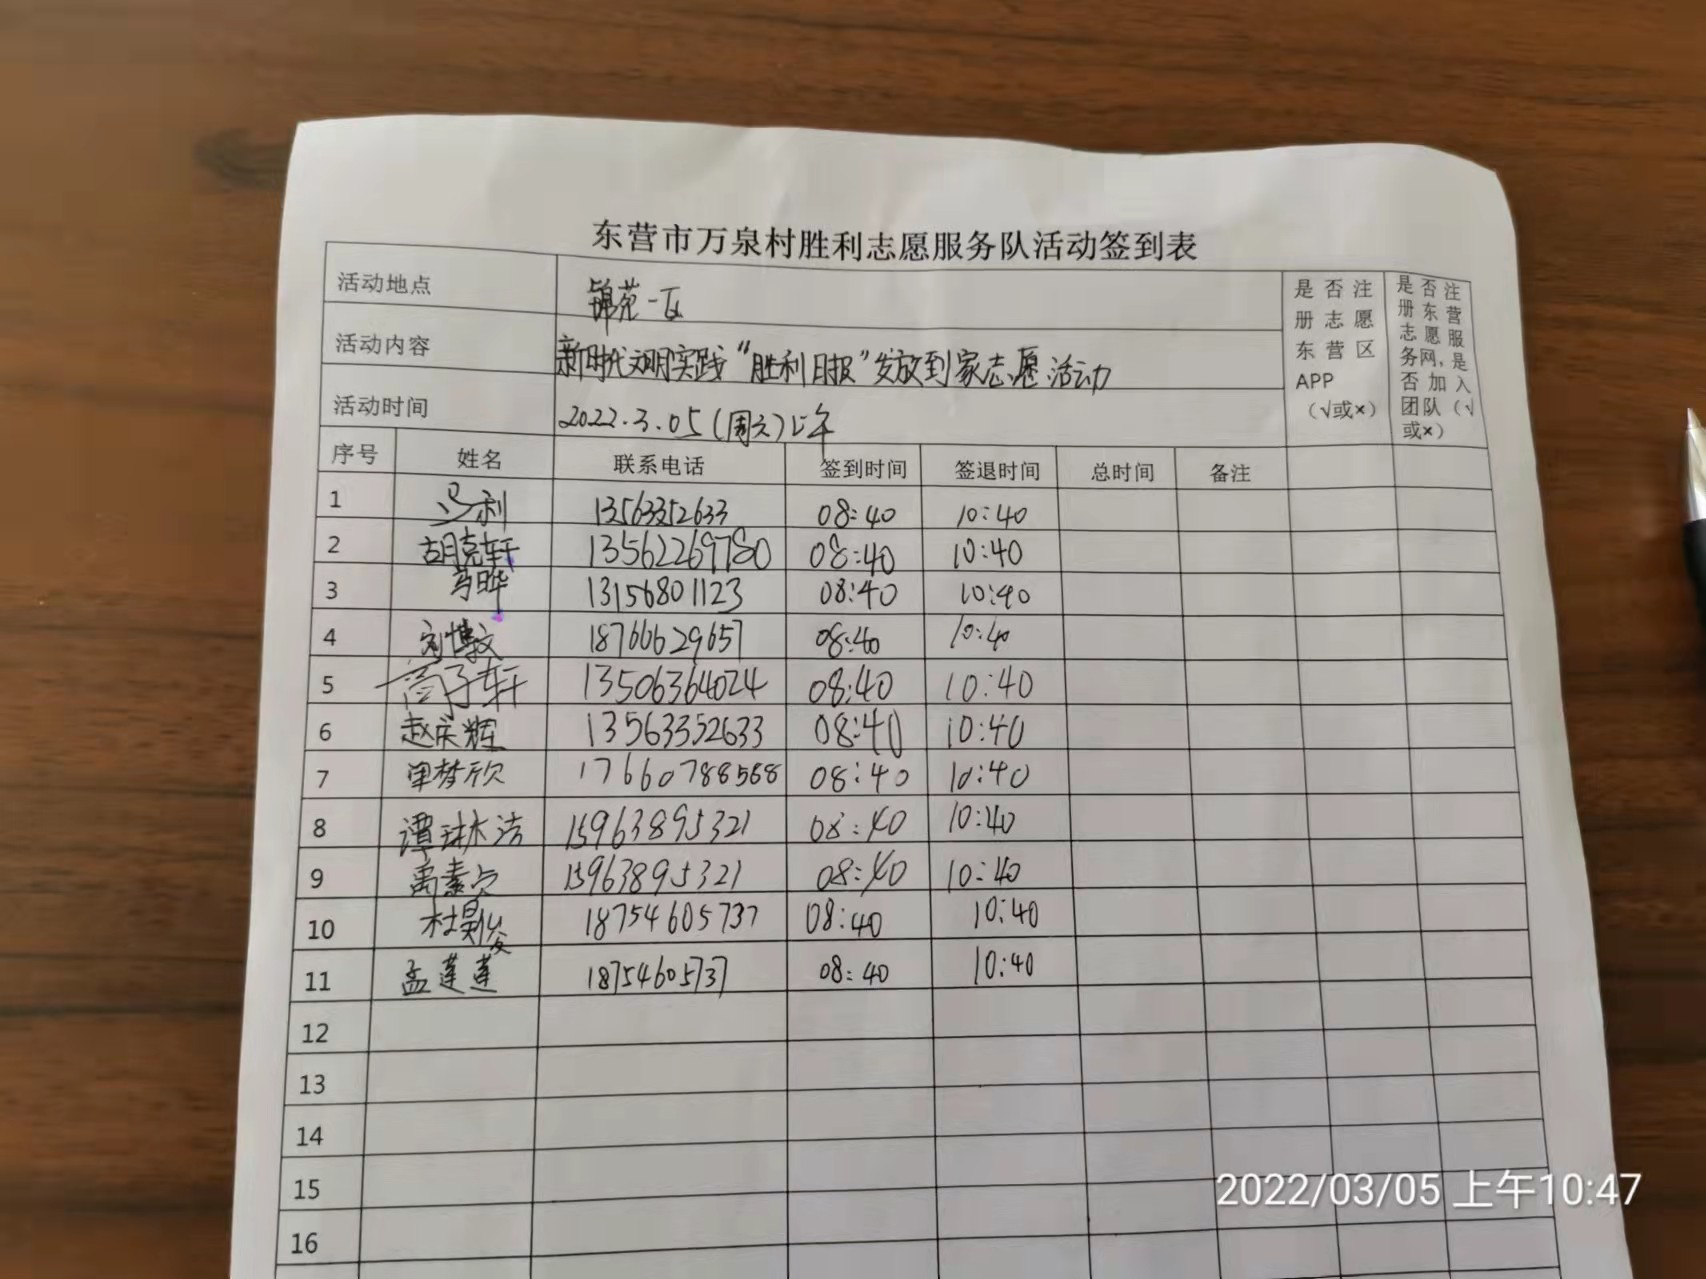 东营市万泉村胜利志愿服务队活动签到表
活动地点 锦苑一区
活动内容 新时代文明实践“胜利日报”发放到家志愿活动
活动时间 2022.3.05(周六)上午
是否注
册志愿
东营区
APP
（√或×）
是否注
册东营
志愿服
务网，是
否加入
团队（√
或×）
序号 姓名 联系电话 签到时间 签退时间 总时间 备注
1 冯利 13563352633 08:40 10:40
2 胡克轩 13562269780 08:40 10:40
3 马晔 13156801123 08:40 10:40
4 刘博文 18766629657 08:40 10:40
5 高子轩 13506364024 08:40 10:40
6 赵庆辉 13563352633 08:40 10:40
7 单梦欣 17660788568 08:40 10:40
8 谭琳洁 15963895321 08:40 10:40
9 禹素贞 15963895321 08:40 10:40
10 杜昊俊 18754605737 08:40 10:40
11 孟莲莲 18754605737 08:40 10:40
12
13
14
15
16
2022/03/05 上午10:47